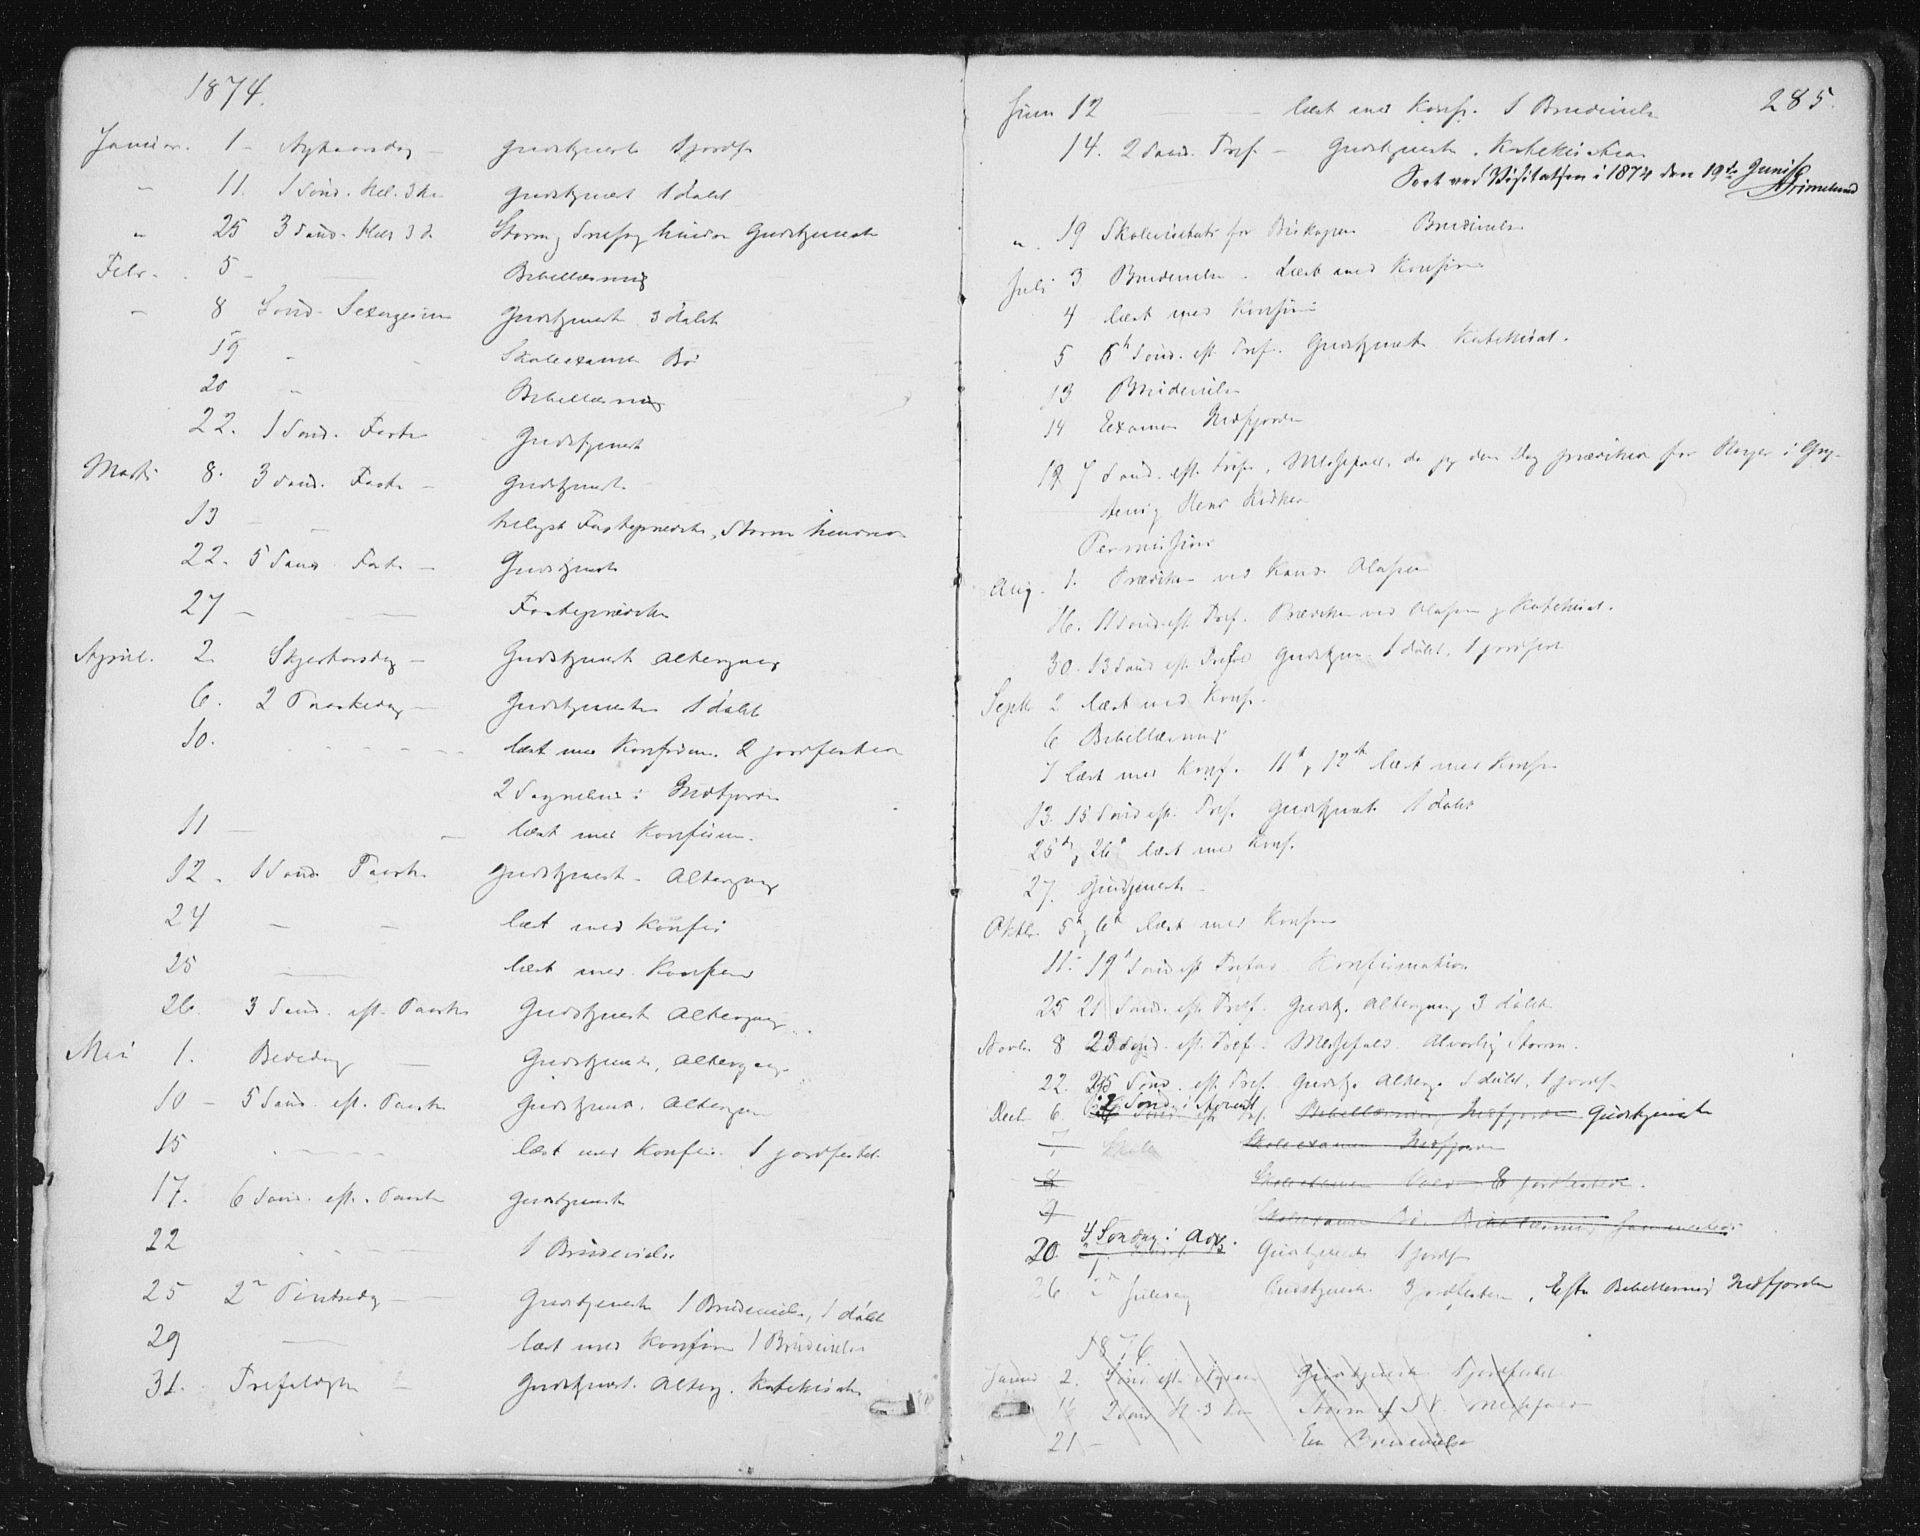 1874.
Januar. 1 - Nytaarsdag - Gudstjeneste 1 jordf
" 11. 1 Sønd. Hel. 3 K. Gudstjenest 1 døbt
" 25 3 Sønd. Hel 3 K Storm og Snefog hindre Gudstjeneste
Febr. 5 - Bibellæsning
" 8 Sønd. Sexagesima Gudstjenest 3 døbt
19 " Skoleexamen Bø
20 " Bibellæsning
22. 1 Sønd. Faste Gudstjenest
Marts 8. 3 Sønd. Faste - Gudstjenest
13 - - Fastepræken, Storm hindrer
22. 5 Sønd. Faste - Gudstjeneste
27 - - Fastepræken
April. 2. Skjertorsdag - Gudstjenest Altergang
6. 2 Paaskedag - Gudstjeneste 1 døbt
10. læst med Konfirm. 2 jordfestelser
2 i Indfjorden
11 - - læst med Konfirm.
12. 1 Sønd. Paaske Gudstjenest - Altergang
24 - - læst med Konfir
25 - læst med Konfirm
26. 3 Sønd. eft. Paaske Gudstjenest Altergang
Mai 1. Bededag - Gudstjeneste, Altergang
10 - 5 Sønd. eft. Paaske Gudstjenes. Altergang
15 læst med Konfir. 1 jordfestet
17. 6 Sønd. eft. Paaske Gudstjenest
22 1 Brudevielse
25 2n Pintsedag - Gudstjeneste 1 Brudevielse, 1 døbt
29 læst med Konfirm 1 Brudevielse
31. Trefoldighe - Gudstjenest. Alterg. Katekisat.
285.
Juni 12 - - læst med Konf. 1 Brudevielse
14. 2 Sønd. Tref - Gudstjeneste. Katekisation
Seet ved Visitatsen i 1874 den 19de Juni Grimelund
" 19 Skolevisitats for Biskopen Brudevielse
Juli 3 Brudevielse - Læst med Konfirm
4 læst med Konfirm
5 5te Sønd. eft. Tref. Gudstjeneste Katekisat.
13 Brudevielse
14 Examen Indfjorden
19. 7 Sønd. eft. Tref. Messefald, da jeg den Dag prædiker for
Permission
Aug. 1. Prædiken ved Kand. Olafsen
16. 11 Sønd. eft. Tref. Prædiken ved Olafsen og Katekisat.
30. 13 Sønd eft. Trefol Gudstjen. 1 døbt. 1 jordfest
Septb 2 læst med Konf.
6 Bibellæsning
7 læst med Konf. 11te og 12te læst med Konf
13. 15 Sønd eft. Tref. Gudstjenst. 1 døbt
25te og 26te læst med Konf.
27. Gudstjeneste
Oktb. 5te og 6te læst med Konfirm
11. 19de Sønd eft Trefol Konfirmation
25 21 Sønd. eft. Tref. Gudstj. Altergang 3 døbt
Novbr 8 23 Sønd. eft. Tref. Messefald. Alvorlig Storm.
22. 25 Sønd. eft. Tref. Gudstj. Alterg. 1 døbt, 1 jordf
Decb. 6. 2 Sønd. i Advent Bibellæsning, Indfjorden Gudstjeneste
7 Skole Skoleexamen Indfjorden
8 Skoleexamen jordfestelse.
9 Skoleexamen Bø. Bibellæsning sammesteds
20. 4 Søndag i Adv. Gudstjeneste 1 jordf
26 2n Juledag Gudstjeneste 3 jordfestelser, Efter Bibellæsning Indfjorden
1876
Januar 2. Sønd. eft. Nytaar Gudstjeneste 1 jordfestet
16 2 Sønd H. 3 K Storm af S.V. Messefald
21 - En Brudevielse